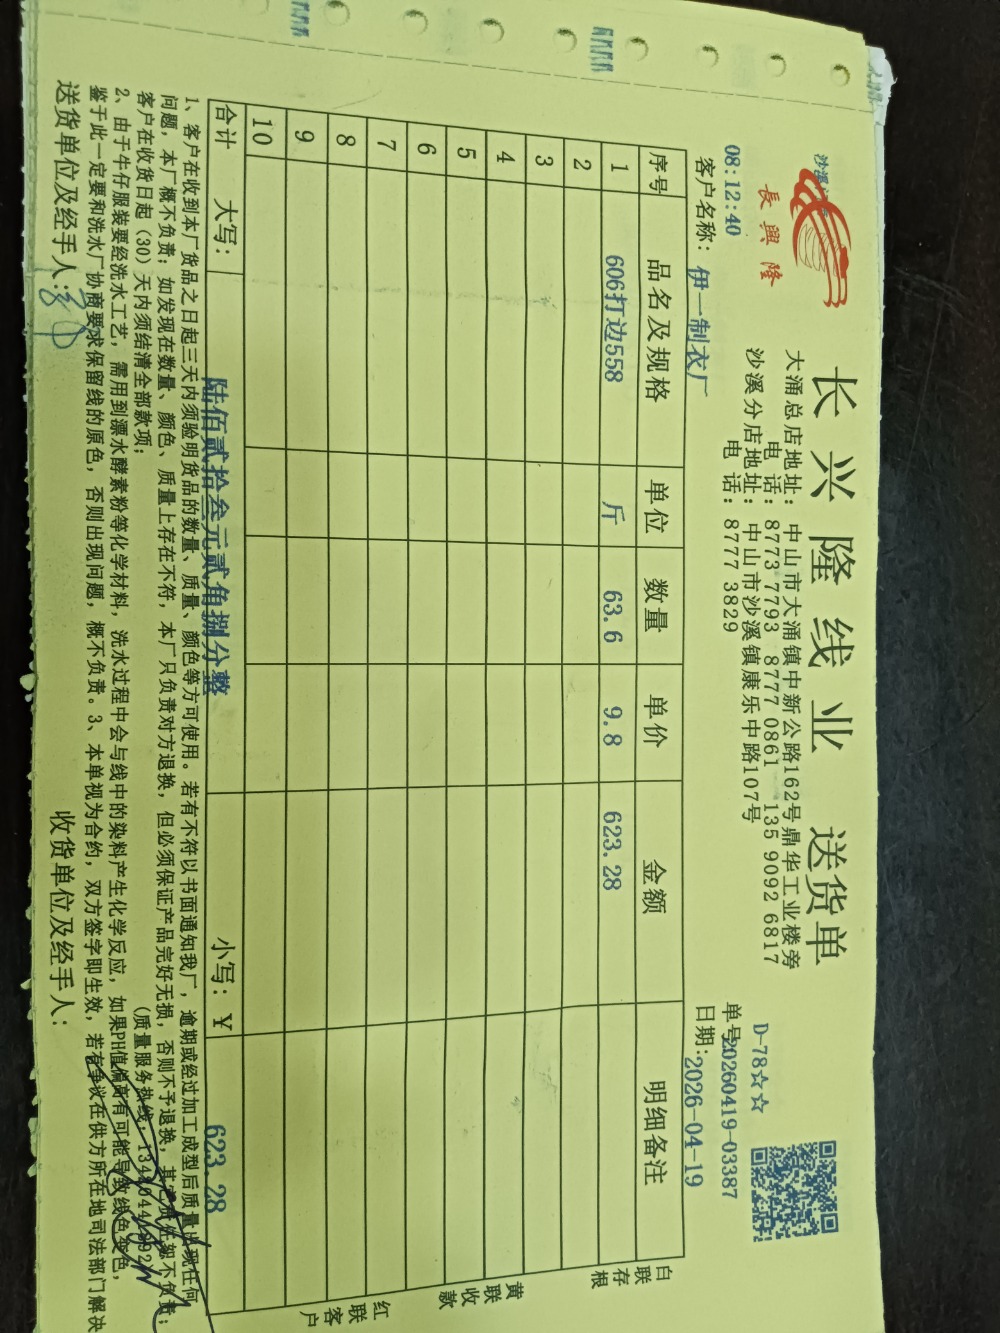 長興隆
长兴隆线业 送货单
大涌总店地址：中山市大涌镇中新公路162号鼎华工业楼旁
电 话：8773 7793 8777 0861 135 9092 6817
沙溪分店地址：中山市沙溪镇康乐中路107号
电 话：8777 3829
D-78☆☆
08:12:40
单号20260419-03387
客户名称：伊一制衣厂
日期：2026-04-19
序号 品名及规格 单位 数量 单价 金额 明细备注
1 606打边558 斤 63.6 9.8 623.28
2
3
4
5
6
7
8
9
10
合计 大写：陆佰贰拾叁元贰角捌分整 小写：¥ 623.28
白联存根
黄联收款
红联客户
1、客户在收到本厂货品之日起三天内须验明货品的数量、质量、颜色等方可使用。若有不符以书面通知我厂，逾期或经过加工成型后质量出现任何
问题，本厂概不负责；如发现在数量、颜色、质量上存在不符，本厂只负责对方退换，但必须保证产品完好无损，否则不予退换，其它损失恕不负责；
客户在收货日起（30）天内须结清全部款项； （质量服务热线：
2、由于牛仔服装要经洗水工艺，需用到漂水酵素粉等化学材料，洗水过程中会与线中的染料产生化学反应，如果PH值偏高有可能导致线色变色，
鉴于此一定要和洗水厂协商要求保留线的原色，否则出现问题，概不负责。3、本单视为合约，双方签字即生效，若有争议在供方所在地司法部门解决
送货单位及经手人： 收货单位及经手人：